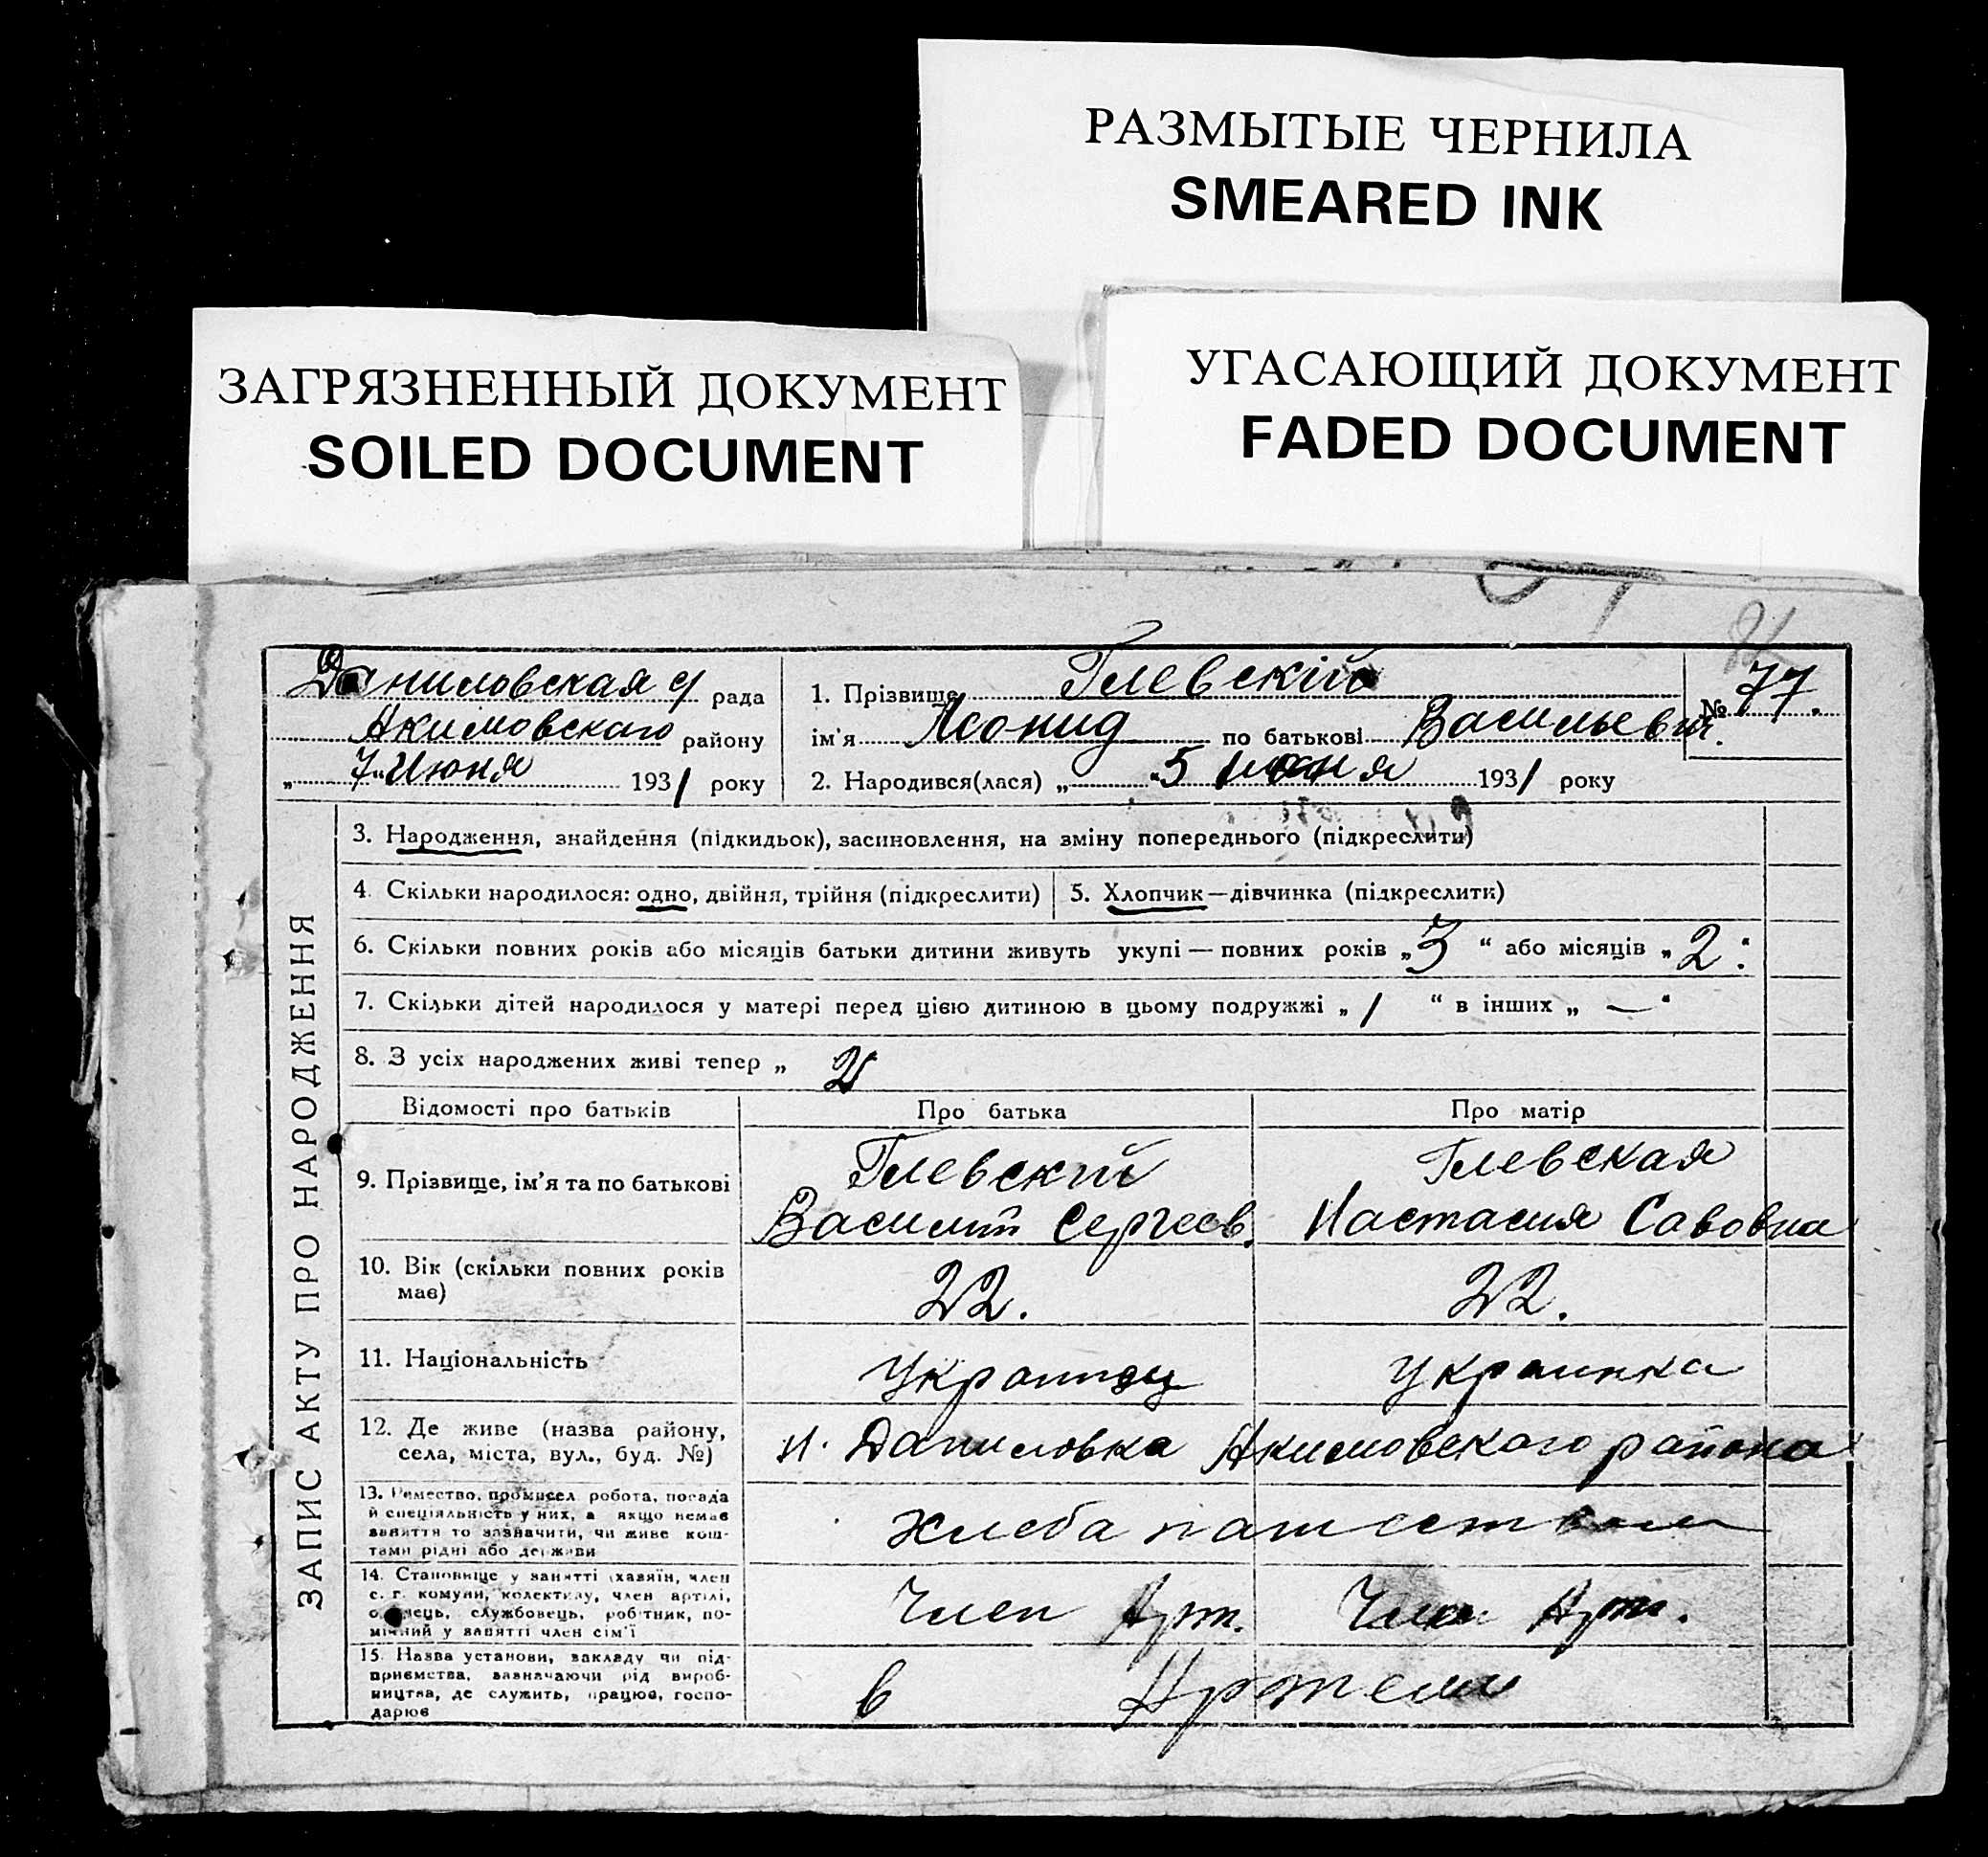 РАЗМЫТЫЕ ЧЕРНИЛА
SMEARED INK
ЗАГРЯЗНЕННЫЙ ДОКУМЕНТ
SOILED DOCUMENT
УГАСАЮЩИЙ ДОКУМЕНТ
FADED DOCUMENT
Даниловская с/ рада
Акимовскаго району
„ 7 Июня 1931 року
1. Прізвище Глевскій
№ 77.
ім'я Леонид по батькові Васильевич.
2. Народився(лася) „ 5 июня 1931 року
ЗАПИС АКТУ ПРО НАРОДЖЕННЯ
3. Народження, знайдення (підкидьок), засиновлення, на зміну попереднього (підкреслити)
4. Скільки народилося: одно, двійня, трійня (підкреслити)
5. Хлопчик—дівчинка (підкреслити)
6. Скільки повних років або місяців батьки дитини живуть укупі — повних років „3 “ або місяців „ 2.“
7. Скільки дітей народилося у матері перед цією дитиною в цьому подружжі „ 1 “ в інших „ — “
8. З усіх народжених живі тепер „ 2
Відомості про батьків
Про батька
Про матір
9. Прізвище, ім'я та по батькові
Глевский
Василий Сергеев.
Глевская
Настасия Савовна
10. Вік (скільки повних років має)
22.
22.
11. Національність
Украинец
Украинка
12. Де живе (назва району,
села, міста, вул., буд. №)
н. Даниловка Акимовского района
13. Ремество, промисел робота, посада
й спеціяльність у них, а якщо немає
заняття то зазначити, чи живе кош-
тами рідні або держави
Хлебопашеством
14. Становище у занятті (хазяїн, член
с. г. комуни, колективу, член артілі,
службовець, робітник, по-
мічний у занятті член сім'ї
Член Арт.
Член Арт.
15. Назва установи, закладу чи під-
приємства, зазначаючи рід вироб-
ництва, де служить, працює, госпо-
дарює
в Артели